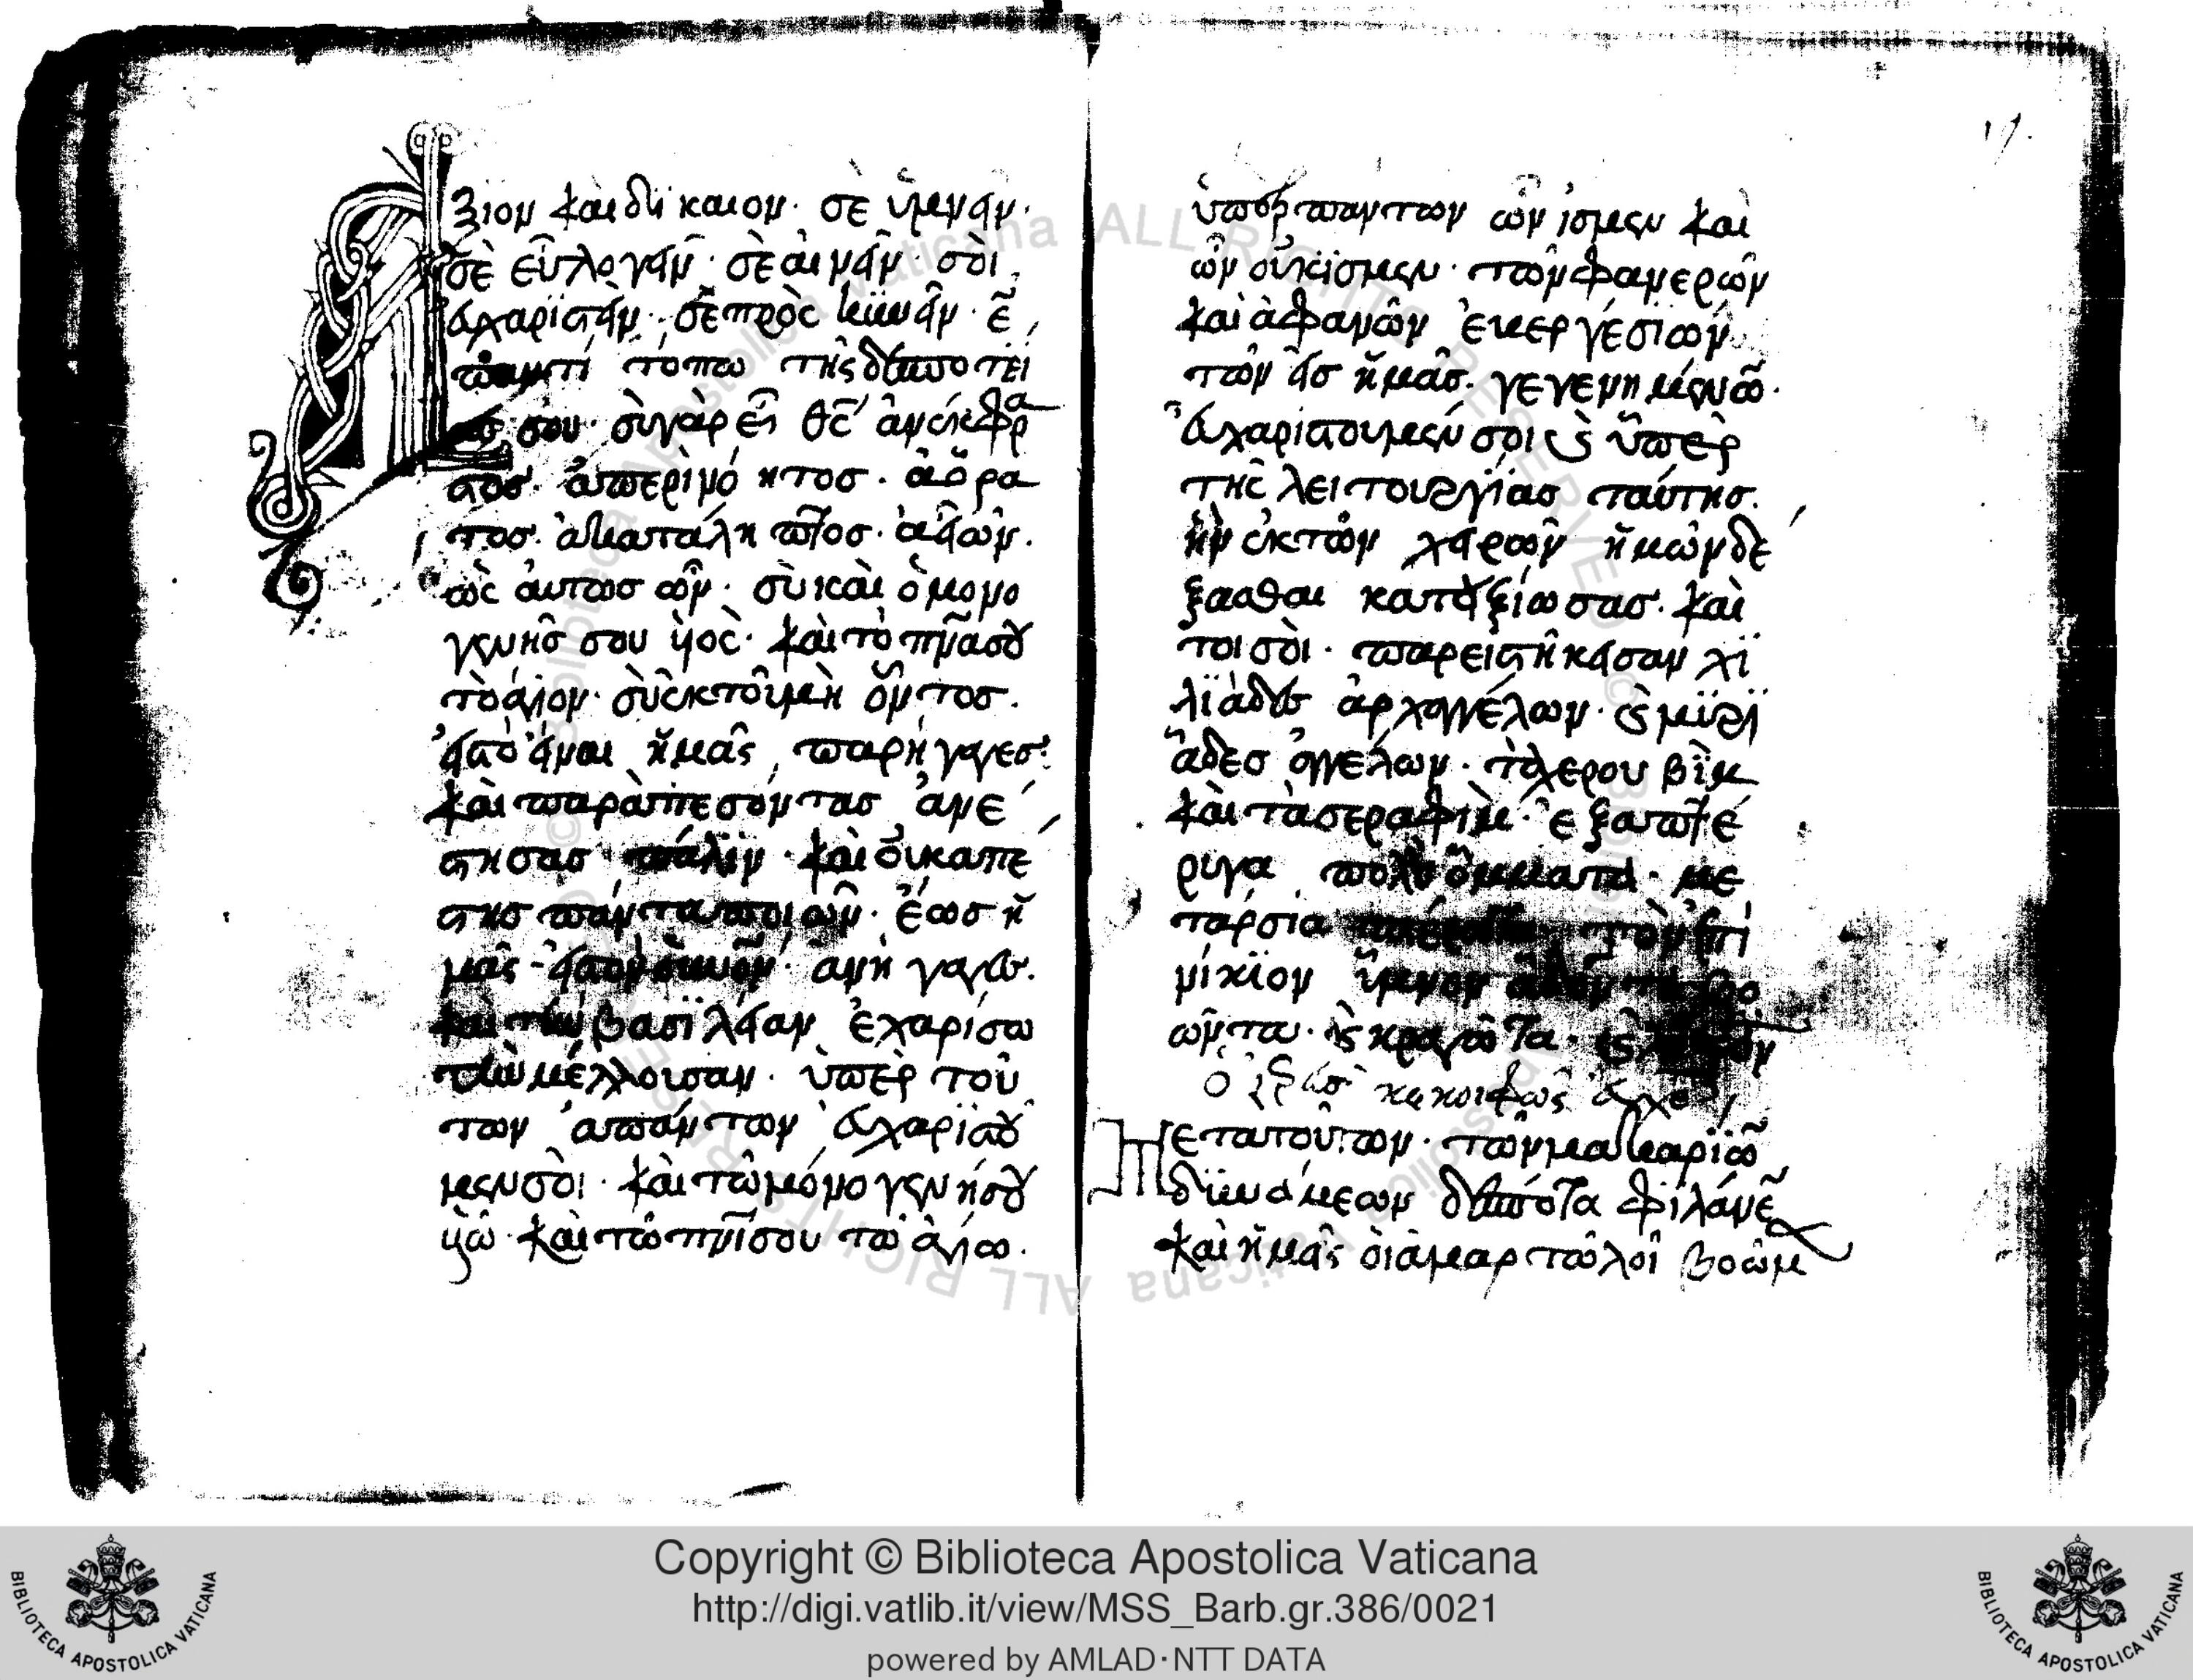 Ἄξιον καὶ δίκαιον· σὲ ὑμνεῖν·
σὲ εὐλογεῖν· σὲ αἰνεῖν· σοὶ
εὐχαρϊστεῖν· σὲ προσκϋνεῖν· ἐ
παντὶ τόπω τῆς δεσποτεί
ασ σου· σὺ γὰρ εῖ θς ἀνέκφρα
στοσ· ἀπερὶνόητοσ· ἀόρα
τοσ· ἀκατάληπτοσ· ἀεὶ ὼν·
ὡς αύτωσ ὢν· σὺ καὶ ὁ μονο
γενής σου ὑιὸς· καὶ τὸ πνᾶ σου
τὸ ἅγιον· σὺ ἐκ τοῦ μὴ ὄντοσ·
εἰσ τὸ εἶναι ἡμᾶς παρήγαγεσ·
καὶ παραπεσόντασ ἀνέ
στησασ πάλϊν· καὶ οὐκ απέ
στησ πάντα ποιῶν· ἕωσ ἡ
μᾶς εἰσ τὸν οὐνὸν ἀνήγαγεσ·
καὶ τὴν βασϊλείαν ἐχαρίσω
τὴν μέλλουσαν· ὑπὲρ τού
των ἁπάντων εὐχαρϊστοῦ
μεν σὸι· καὶ τῶ μονογενή σου
ὑιῶ· καὶ τῶ πνϊ σου τῶ ἁγίω·
ὑπὲρ πάντων ὧν ἴσμεν καὶ
ὧν οὐκ ϊσμεν· τῶν φανερῶν
καὶ ἀφανῶν ἐυεργέσιῶν
τῶν εἰσ ἡμᾶσ· γεγενημένων·
Εὐχαριστουμέν σοι κ ὑπὲρ
τῆς λειτουργΐασ ταύτησ·
ἣν ἐκ τῶν χειρῶν ἡμῶν δέ
ξασθαι κατηξίωσασ· καὶ
τοι σὸι· παρειστήκεισαν χϊ
λϊάδεσ ἀρχαγγέλων· κ μϋρϊ
άδεσ ἀγγέλων· τὰ χερουβὶμ
καὶ τὰ σεραφὶμ· ἑξαπτέ
ρυγα πολυόμματα· με
τάρσια πτέρωτα· τὸν ἐπὶ
νίκϊον ὕμνον ἄδοντα βο
ῶντα· κ κραγότα· κ λέγον
ὁ ἱερεὺσ
Μετα τούτων· τῶν μακαρϊῶν
δϋνάμεων δέσποτα φϊλάνε
καὶ ἡμᾶς ὁι ἁμαρτωλοὶ βοῶμ
Copyright © Biblioteca Apostolica Vaticana
http://digi.vatlib.it/view/MSS_Barb.gr.386/0021
powered by AMLAD·NTT DATA
BIBLIOTECA APOSTOLICA VATICANA
BIBLIOTECA APOSTOLICA VATICANA